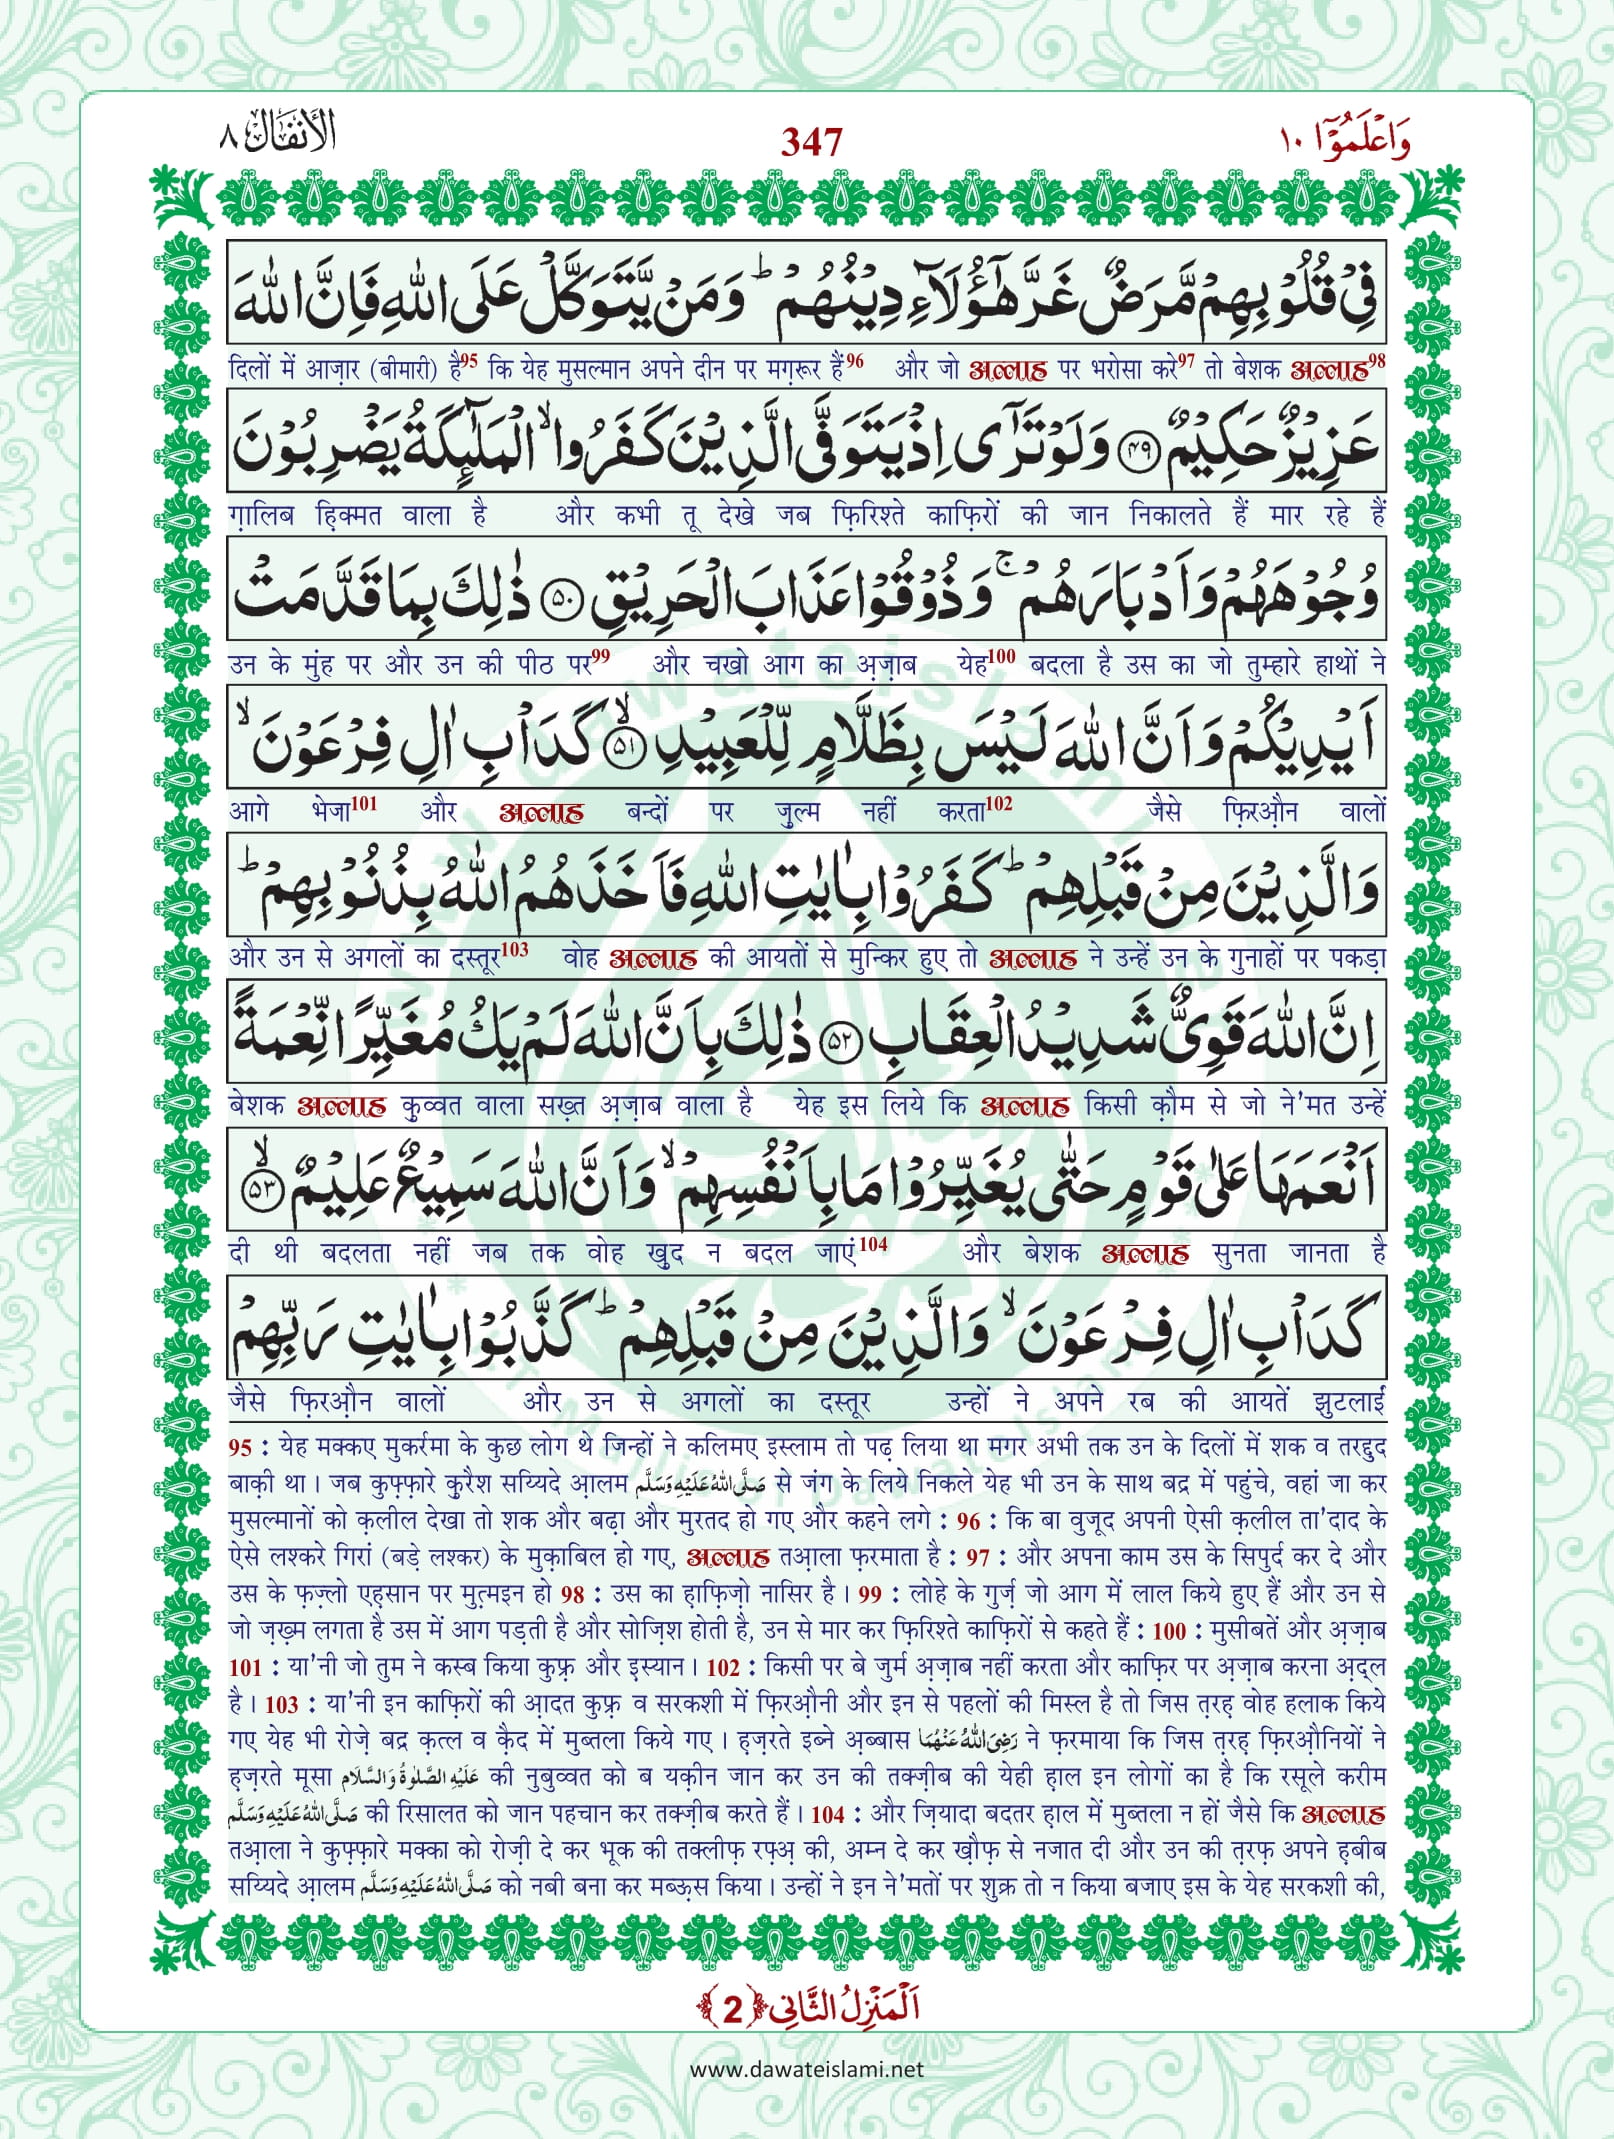 وَاعْلَمُوْۤا ١٠
347
الْاَنْفَال ٨
فِیْ قُلُوْبِهِمْ مَّرَضٌ غَرَّ هٰۤؤُلَآءِ دِیْنُهُمْ ؕ وَمَنْ یَّتَوَكَّلْ عَلَی اللّٰهِ فَاِنَّ اللّٰهَ
दिलों में आज़ार (बीमारी) है95 कि येह मुसल्मान अपने दीन पर मग़रूर हैं96 और जो अल्लाह पर भरोसा करे97 तो बेशक अल्लाह98
عَزِیْزٌ حَكِیْمٌ ﴿۴۹﴾ وَلَوْ تَرٰۤی اِذْ یَتَوَفَّی الَّذِیْنَ كَفَرُوا ۙ الْمَلٰٓىِٕكَةُ یَضْرِبُوْنَ
ग़ालिब हिक्मत वाला है और कभी तू देखे जब फ़िरिश्ते काफ़िरों की जान निकालते हैं मार रहे हैं
وُجُوْهَهُمْ وَاَدْبَارَهُمْ ۚ وَذُوْقُوْا عَذَابَ الْحَرِیْقِ ﴿۵۰﴾ ذٰلِكَ بِمَا قَدَّمَتْ
उन के मुंह पर और उन की पीठ पर99 और चखो आग का अ़ज़ाब येह100 बदला है उस का जो तुम्हारे हाथों ने
اَیْدِیْكُمْ وَاَنَّ اللّٰهَ لَیْسَ بِظَلَّامٍ لِّلْعَبِیْدِ ﴿ۙ۵۱﴾ كَدَاْبِ اٰلِ فِرْعَوْنَ ۙ
आगे भेजा101 और अल्लाह बन्दों पर ज़ुल्म नहीं करता102 जैसे फ़िरऔ़न वालों
وَالَّذِیْنَ مِنْ قَبْلِهِمْ ؕ كَفَرُوْا بِاٰیٰتِ اللّٰهِ فَاَخَذَهُمُ اللّٰهُ بِذُنُوْبِهِمْ ؕ
और उन से अगलों का दस्तूर103 वोह अल्लाह की आयतों से मुन्किर हुए तो अल्लाह ने उन्हें उन के गुनाहों पर पकड़ा
اِنَّ اللّٰهَ قَوِیٌّ شَدِیْدُ الْعِقَابِ ﴿۵۲﴾ ذٰلِكَ بِاَنَّ اللّٰهَ لَمْ یَكُ مُغَیِّرًا نِّعْمَةً
बेशक अल्लाह कु़व्वत वाला सख़्त अ़ज़ाब वाला है येह इस लिये कि अल्लाह किसी क़ौम से जो ने'मत उन्हें
اَنْعَمَهَا عَلٰی قَوْمٍ حَتّٰی یُغَیِّرُوْا مَا بِاَنْفُسِهِمْ ۙ وَاَنَّ اللّٰهَ سَمِیْعٌ عَلِیْمٌ ﴿ۙ۵۳﴾
दी थी बदलता नहीं जब तक वोह खु़द न बदल जाएं104 और बेशक अल्लाह सुनता जानता है
كَدَاْبِ اٰلِ فِرْعَوْنَ ۙ وَالَّذِیْنَ مِنْ قَبْلِهِمْ ؕ كَذَّبُوْا بِاٰیٰتِ رَبِّهِمْ
जैसे फ़िरऔ़न वालों और उन से अगलों का दस्तूर उन्हों ने अपने रब की आयतें झुटलाईं
95 : येह मक्कए मुकर्रमा के कुछ लोग थे जिन्हों ने कलिमए इस्लाम तो पढ़ लिया था मगर अभी तक उन के दिलों में शक व तरद्दुद
बाक़ी था। जब कुफ़्फ़ारे कु़रैश सय्यिदे आ़लम صَلَّی اللّٰهُ عَلَیْهِ وَسَلَّم से जंग के लिये निकले येह भी उन के साथ बद्र में पहुंचे, वहां जा कर
मुसल्मानों को क़लील देखा तो शक और बढ़ा और मुरतद हो गए और कहने लगे : 96 : कि बा वुजूद अपनी ऐसी क़लील ता'दाद के
ऐसे लश्करे गिरां (बड़े लश्कर) के मुक़ाबिल हो गए, अल्लाह तआ़ला फ़रमाता है : 97 : और अपना काम उस के सिपुर्द कर दे और
उस के फ़ज़्लो एह़सान पर मुत़्मइन हो 98 : उस का ह़ाफ़िज़ो नासिर है। 99 : लोहे के गुर्ज़ जो आग में लाल किये हुए हैं और उन से
जो ज़ख़्म लगता है उस में आग पड़ती है और सोज़िश होती है, उन से मार कर फ़िरिश्ते काफ़िरों से कहते हैं : 100 : मुसीबतें और अ़ज़ाब
101 : या'नी जो तुम ने कस्ब किया कुफ़्र और इस्यान। 102 : किसी पर बे जुर्म अ़ज़ाब नहीं करता और काफ़िर पर अ़ज़ाब करना अ़द्ल
है। 103 : या'नी इन काफ़िरों की आ़दत कुफ़्र व सरकशी में फ़िरऔ़नी और इन से पहलों की मिस्ल है तो जिस त़रह़ वोह हलाक किये
गए येह भी रोज़े बद्र क़त्ल व क़ैद में मुब्तला किये गए। ह़ज़रते इब्ने अ़ब्बास رَضِیَ اللّٰهُ عَنْهُمَا ने फ़रमाया कि जिस त़रह़ फ़िरऔ़नियों ने
ह़ज़रते मूसा عَلَیْهِ الصَّلٰوةُ وَالسَّلَام की नुबुव्वत को ब यक़ीन जान कर उन की तक्ज़ीब की येही ह़ाल इन लोगों का है कि रसूले करीम
صَلَّی اللّٰهُ عَلَیْهِ وَسَلَّم की रिसालत को जान पहचान कर तक्ज़ीब करते हैं। 104 : और ज़ियादा बदतर ह़ाल में मुब्तला न हों जैसे कि अल्लाह
तआ़ला ने कुफ़्फ़ारे मक्का को रोज़ी दे कर भूक की तक्लीफ़ रफ़्अ़ की, अम्न दे कर ख़ौफ़ से नजात दी और उन की त़रफ़ अपने ह़बीब
सय्यिदे आ़लम صَلَّی اللّٰهُ عَلَیْهِ وَسَلَّم को नबी बना कर मब्ऊ़स किया। उन्हों ने इन ने'मतों पर शुक्र तो न किया बजाए इस के येह सरकशी की,
اَلْمَنْزِلُ الثَّانِی ﴿2﴾
www.dawateislami.net